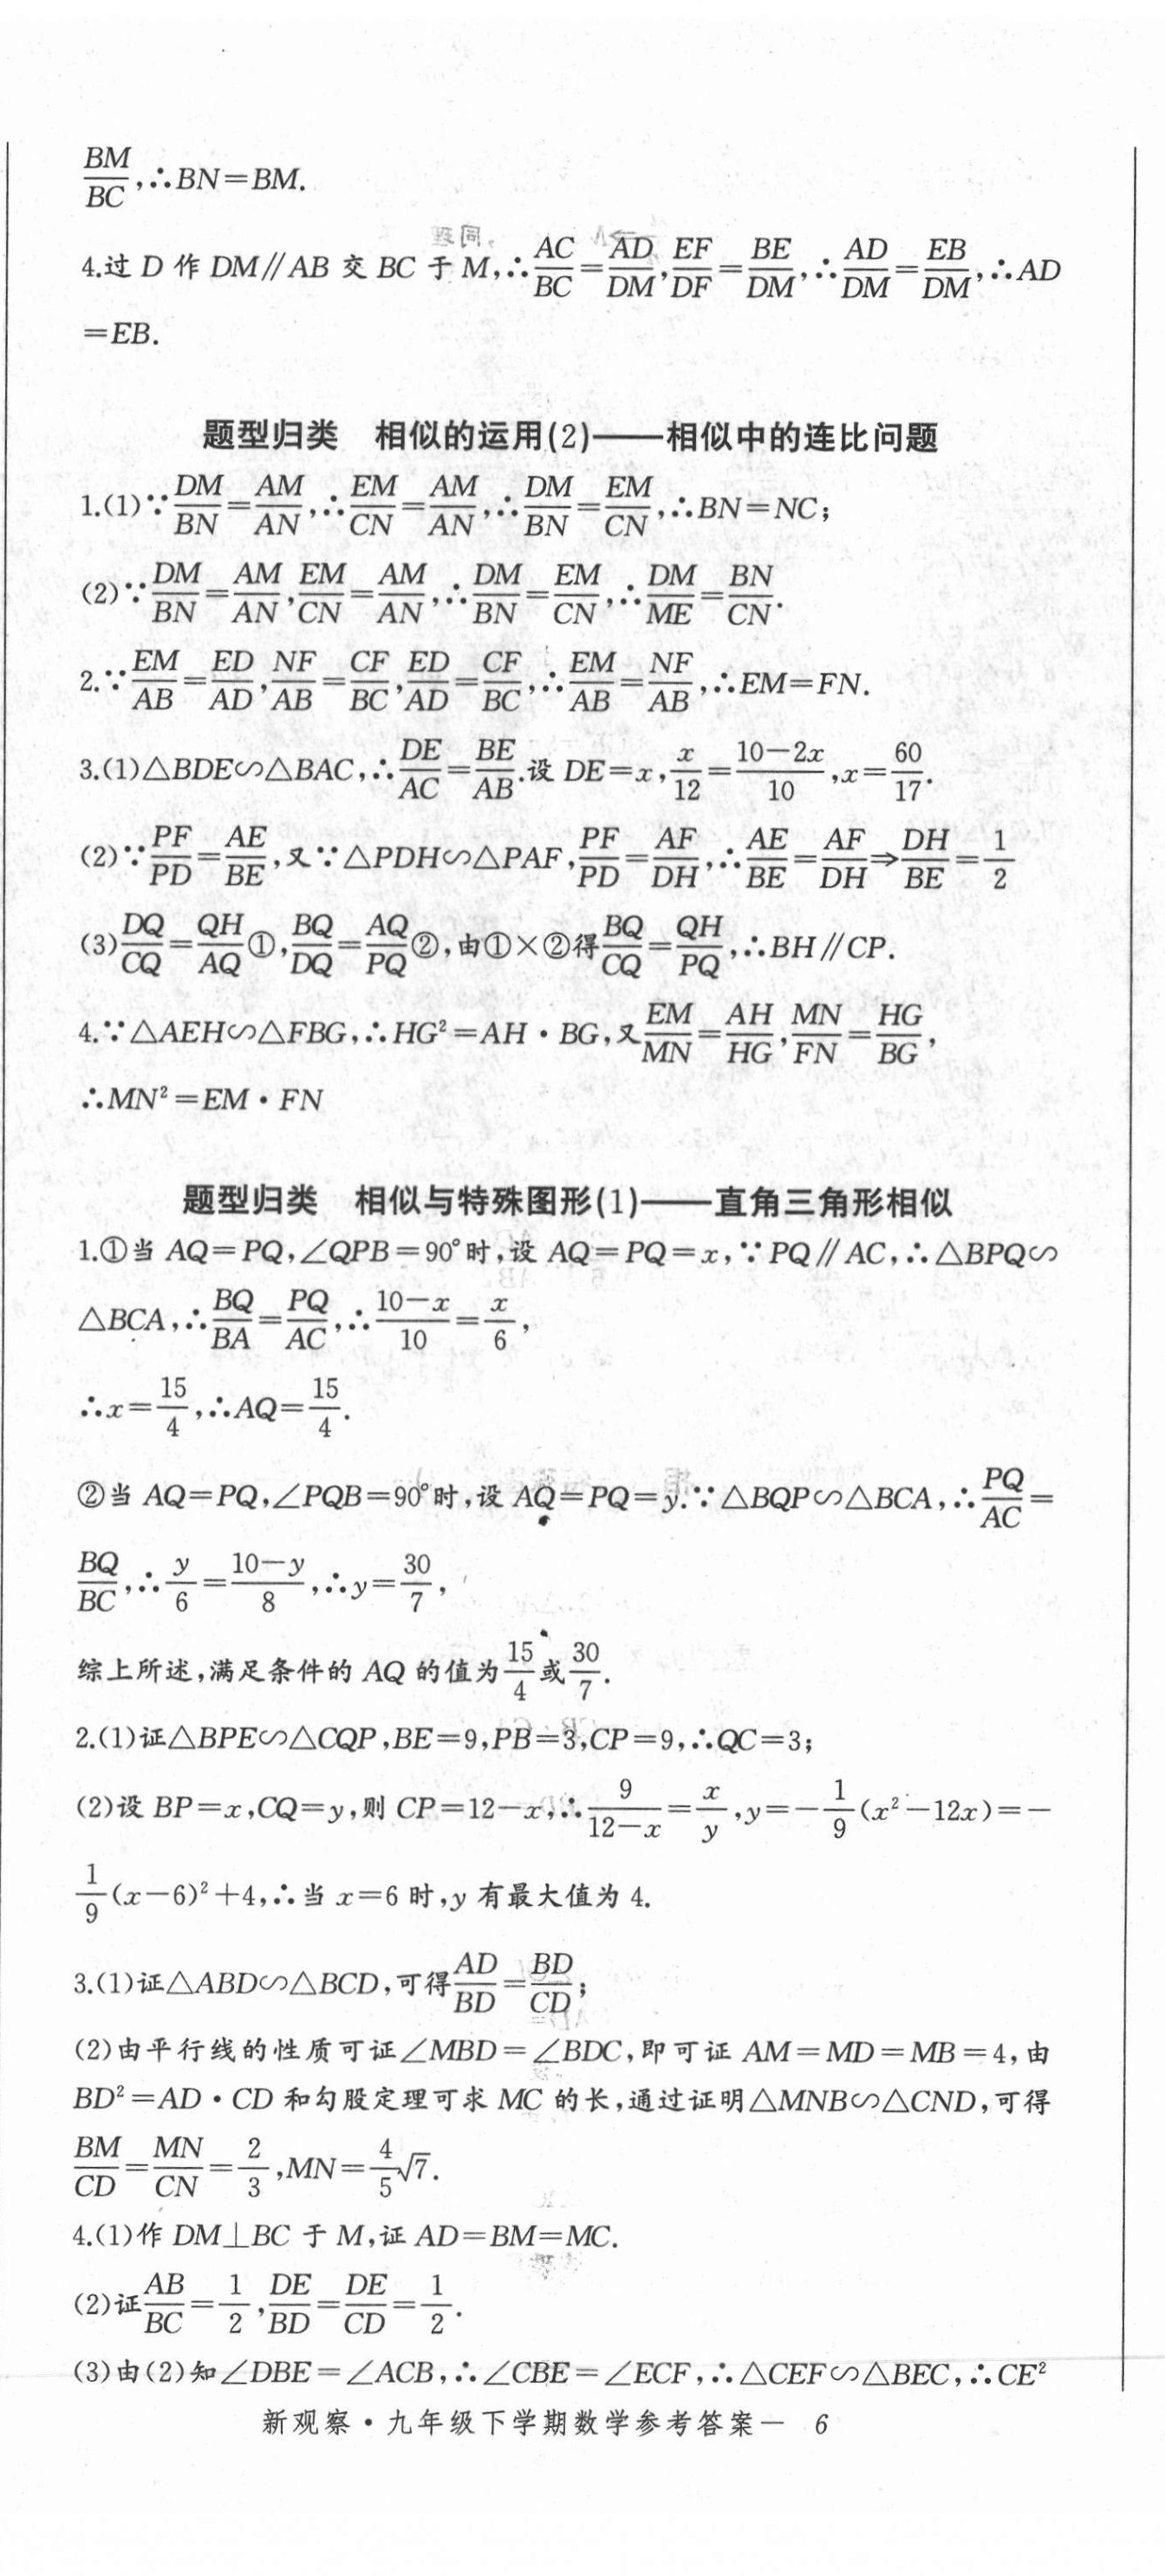 BM/BC,∴BN=BM.
4.过 D 作 DM∥AB 交 BC 于 M,∴AC/BC=AD/DM,EF/DF=BE/DM,∴AD/DM=EB/DM,∴AD
=EB.
题型归类 相似的运用(2)——相似中的连比问题
1.(1)∵DM/BN=AM/AN,∴EM/CN=AM/AN,∴DM/BN=EM/CN,∴BN=NC;
(2)∵DM/BN=AM/AN,EM/CN=AM/AN,∴DM/BN=EM/CN,∴DM/ME=BN/CN.
2.∵EM/AB=ED/AD,NF/AB=CF/BC,ED/AD=CF/BC,∴EM/AB=NF/AB,∴EM=FN.
3.(1)△BDE∽△BAC,∴DE/AC=BE/AB.设 DE=x,x/12=(10-2x)/10,x=60/17.
(2)∵PF/PD=AE/BE,又∵△PDH∽△PAF,PF/PD=AF/DH,∴AE/BE=AF/DH⇒DH/BE=1/2
(3)DQ/CQ=QH/AQ①,BQ/DQ=AQ/PQ②,由①×②得BQ/CQ=QH/PQ,∴BH∥CP.
4.∵△AEH∽△FBG,∴HG²=AH·BG,又EM/MN=AH/HG,MN/FN=HG/BG,
∴MN²=EM·FN
题型归类 相似与特殊图形(1)——直角三角形相似
1.①当 AQ=PQ,∠QPB=90°时,设 AQ=PQ=x,∵PQ∥AC,∴△BPQ∽
△BCA,∴BQ/BA=PQ/AC,∴(10-x)/10=x/6,
∴x=15/4,∴AQ=15/4.
②当 AQ=PQ,∠PQB=90°时,设 AQ=PQ=y.∵△BQP∽△BCA,∴PQ/AC=
BQ/BC,∴y/6=(10-y)/8,∴y=30/7,
综上所述,满足条件的 AQ 的值为15/4或30/7.
2.(1)证△BPE∽△CQP,BE=9,PB=3,CP=9,∴QC=3;
(2)设 BP=x,CQ=y,则 CP=12-x,∴9/(12-x)=x/y,y=-1/9(x²-12x)=-
1/9(x-6)²+4,∴当 x=6 时,y 有最大值为 4.
3.(1)证△ABD∽△BCD,可得AD/BD=BD/CD;
(2)由平行线的性质可证∠MBD=∠BDC,即可证 AM=MD=MB=4,由
BD²=AD·CD 和勾股定理可求 MC 的长,通过证明△MNB∽△CND,可得
BM/CD=MN/CN=2/3,MN=4/5√7.
4.(1)作 DM⊥BC 于 M,证 AD=BM=MC.
(2)证AB/BC=1/2,DE/BD=DE/CD=1/2.
(3)由(2)知∠DBE=∠ACB,∴∠CBE=∠ECF,∴△CEF∽△BEC,∴CE²
新观察·九年级下学期数学参考答案— 6